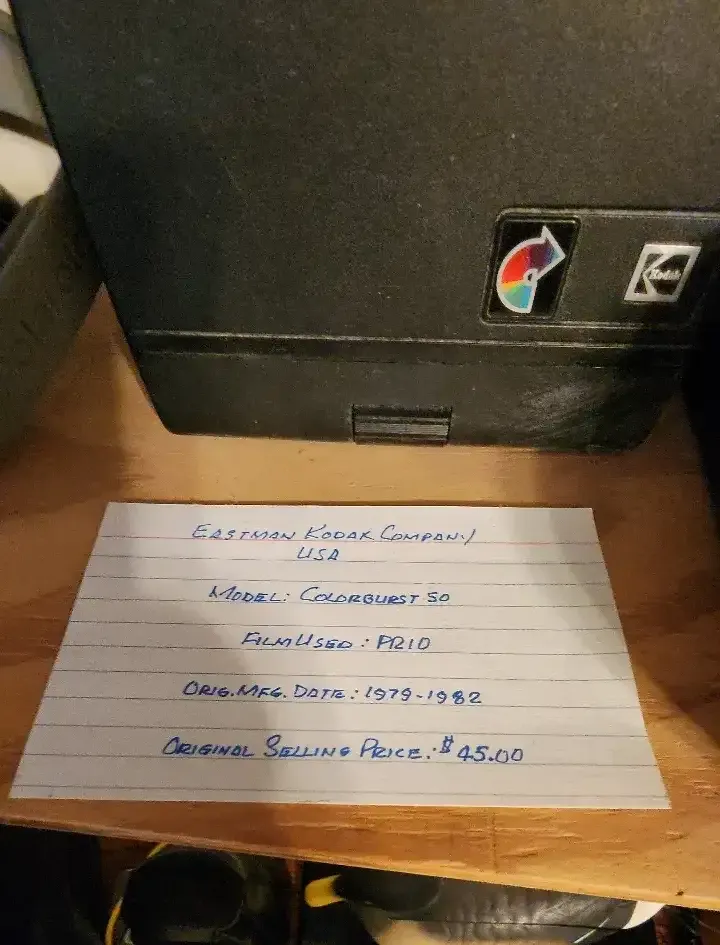 Kodak
EASTMAN KODAK COMPANY
USA
MODEL: COLORBURST 50
FILM USED: PR10
ORIG. MFG. DATE: 1979-1982
ORIGINAL SELLING PRICE: $45.00